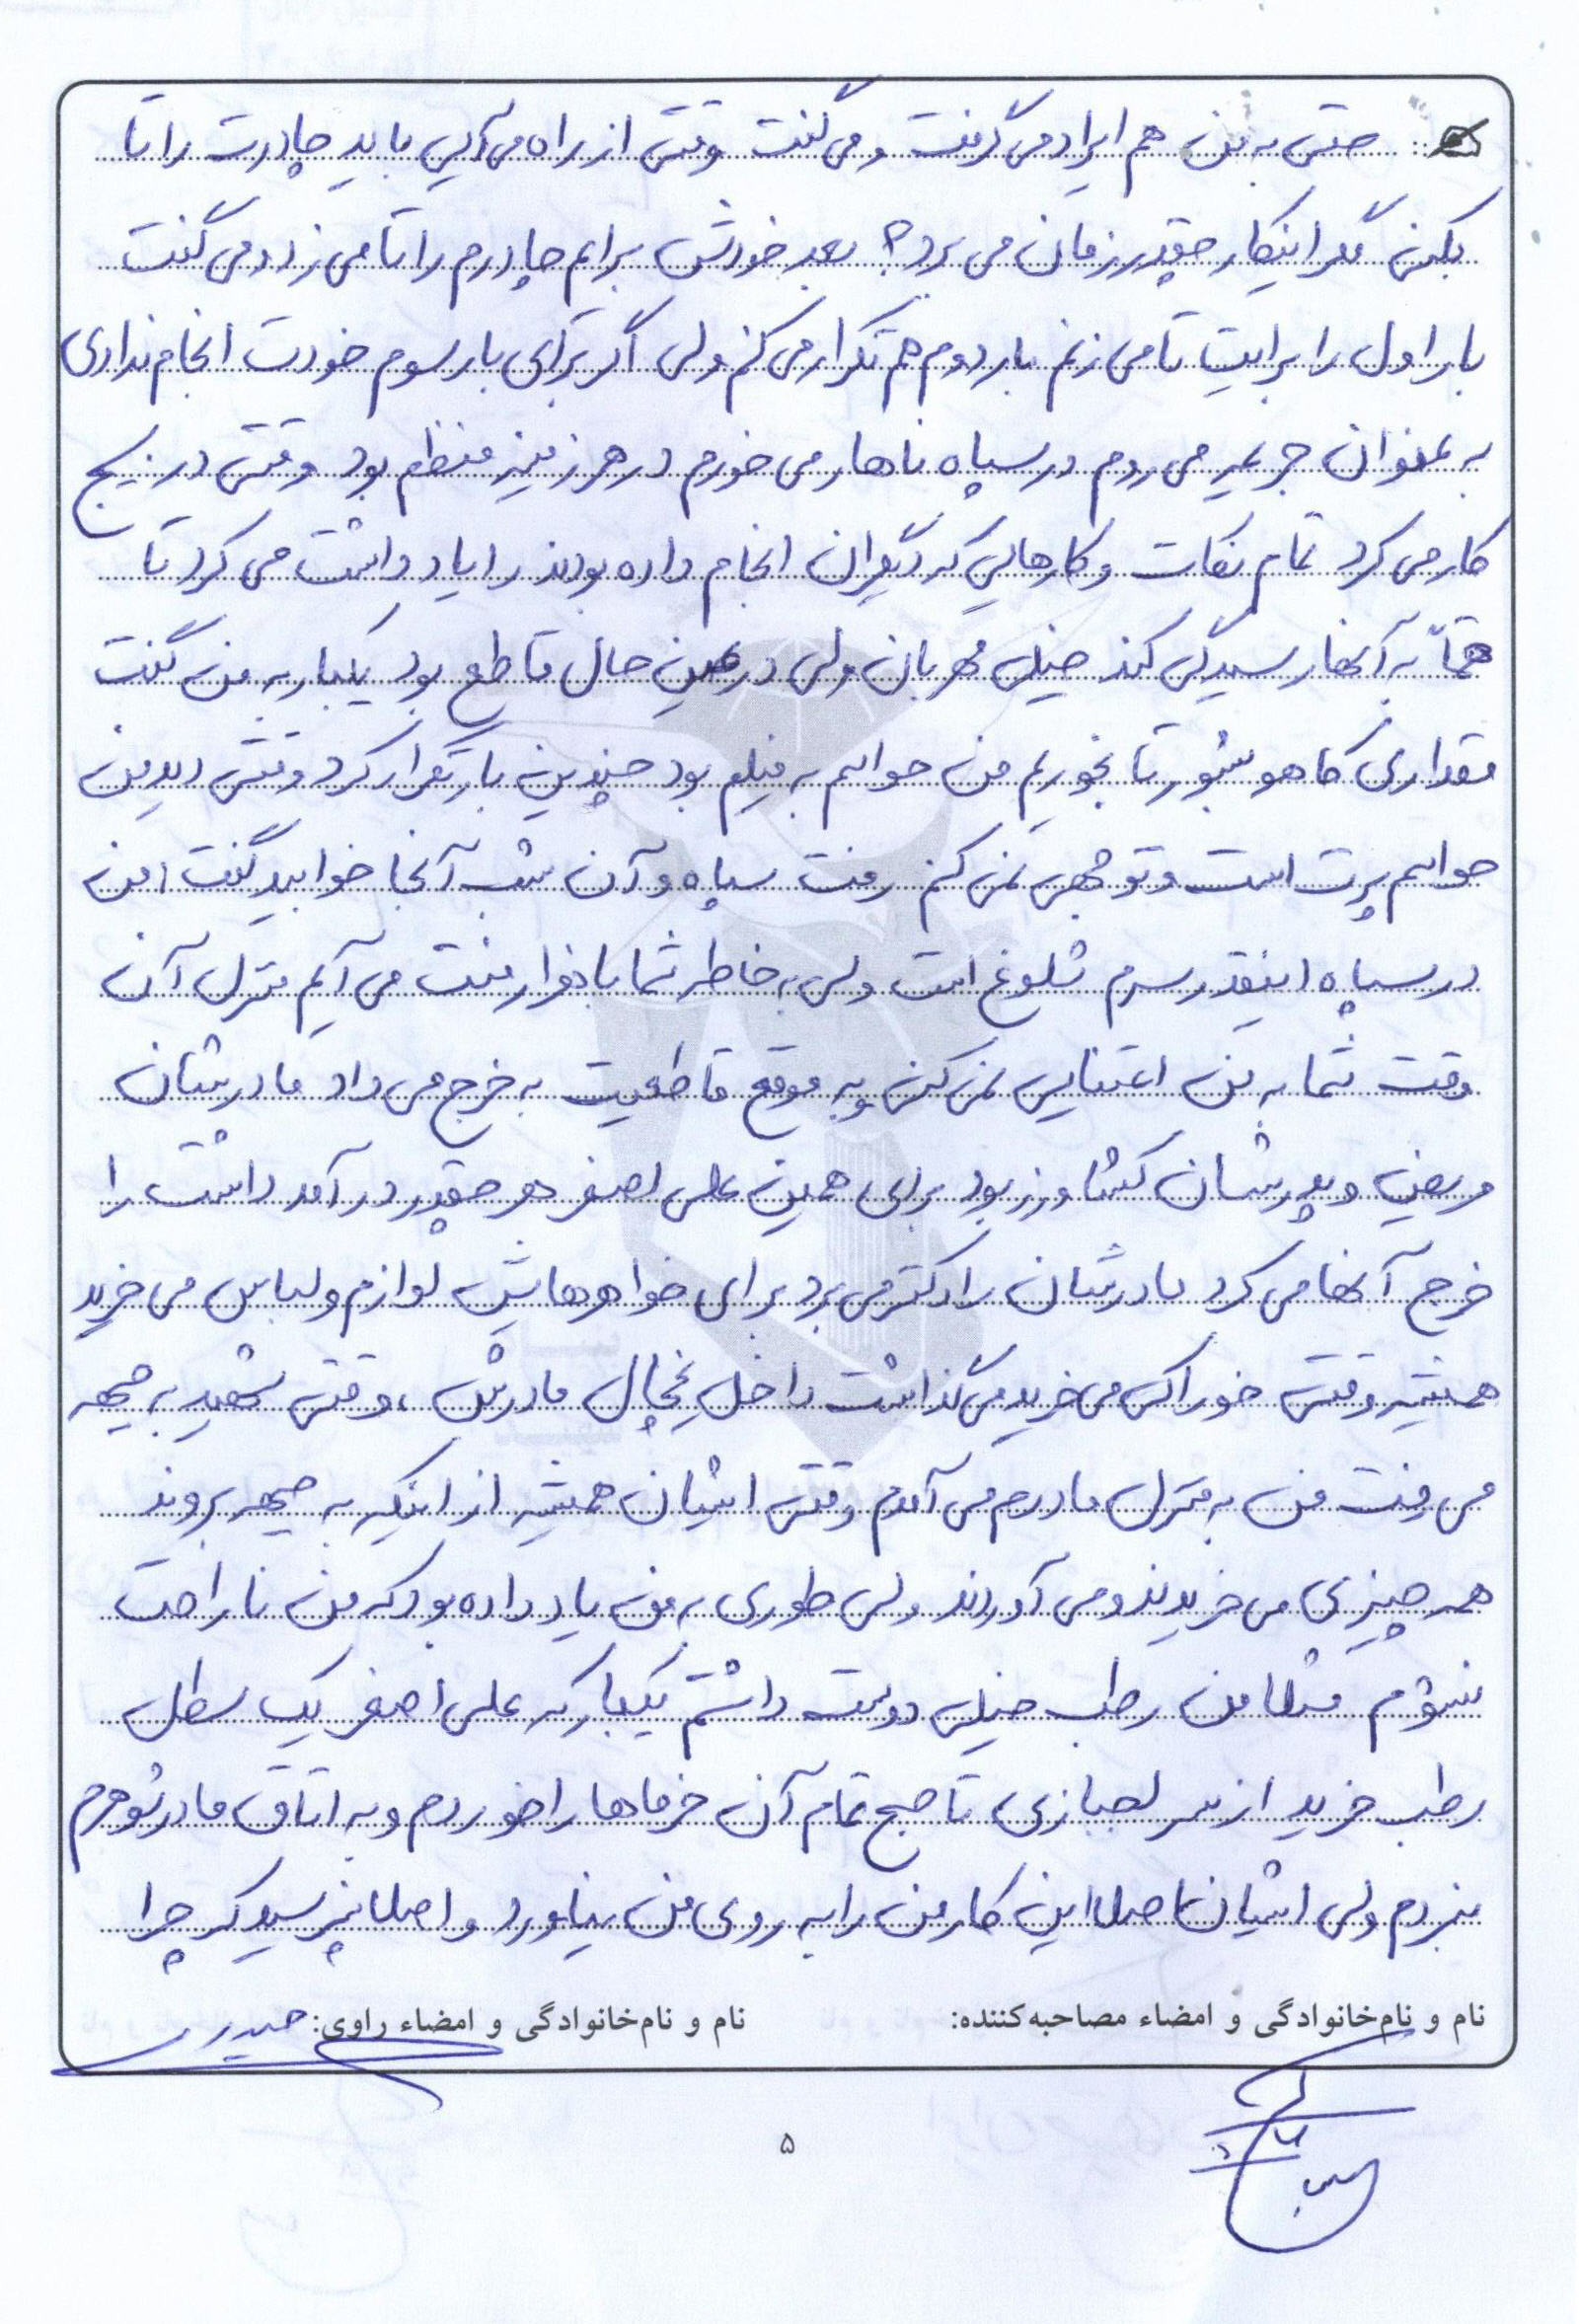 حتی به من هم ایراد می‌گرفت و می‌گفت وقتی از راه می‌آیی باید چادرت را تا
بکنی مگر اینکار چقدر زمان می برد؟ بعد خودش برایم چادرم را تا می زد و می گفت
بار اول را برایت تا می زنم بار دوم هم تکرار می کنم ولی اگر برای بار سوم خودت انجام نداری
به عنوان جریمه می روم در سپاه ناهار می خورم در هر زمینه منظم بود وقتی در بسیج
کار می کرد تمام نکات و کارهایی که دیگران انجام داده بودند را یاد داشت می کرد تا
حتماً به آنها رسیدگی کند خیلی مهربان ولی در عین حال قاطع بود یکبار به من گفت
مقداری کاهو بشور تا بخوریم من حواسم به فیلم بود چندین بار تکرار کرد وقتی دید من
حواسم پرت است و توجهی نمی کنم رفت سپاه و آن شب آنجا خوابید گفت من
در سپاه اینقدر سرم شلوغ است ولی به خاطر شما با هزار منت می آیم منزل آن
وقت شما به من اعتنایی نمی کنی و به موقع قاطعیت به خرج می داد مادرشان
مریض و پدرشان کشاورز بود برای همین علی اصغر هر چقدر درآمد داشت را
خرج آنها می کرد مادرشان را دکتر می برد برای خواهرهایش لوازم و لباس می خرید
همیشه وقتی خوراکی می خرید می گذاشت داخل یخچال مادرش ، وقتی شهید به جبهه
می رفت من به منزل مادرم می آمدم وقتی ایشان همیشه از اینکه به جبهه بروند
همه چیزی می خریدند و می آوردند ولی طوری به من یاد داده بود که من ناراحت
نشوم مثلا من رطب خیلی دوست داشتم یکبار که علی اصغر یک سطل
رطب خرید از سر لجبازی تا صبح تمام آن خرماها را خوردم و به اتاق مادرشوهرم
نبردم ولی ایشان اصلا این کار من را به روی من نیاورد و اصلا نپرسید که چرا
نام و نام‌خانوادگی و امضاء مصاحبه‌کننده: نام و نام‌خانوادگی و امضاء راوی: حیدری
۵